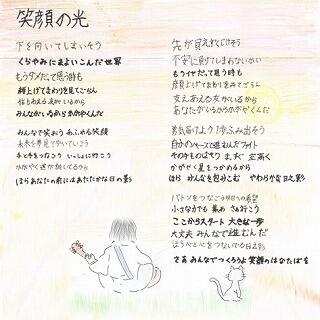 笑顔の光
下を向いてしまいそう
くらやみにまよいこんだ世界
もうダメだって思う時も
顔上げてまわりを見てごらん
みんながいるから
みんなで笑おう あふれる笑顔
未来を夢見て歩いていこう
手と手をつなごう いっしょに行こう
かがやく道が続いてるから
ほらあなたの前にはあたたかな日の影
先が見えなくて
不安に負けてしまわないかい
もうイヤだって思う時も
顔上げてまわりをみてごらん
支えあえる友がいるから
あなたがいるから
勇気出そう 1歩ふみ出そう
自分のペースで進むんだ
かがやく星をつかめるから
ほら みんなを包みこむ やわらかな日之影
バトンをつなごう明日への希望
小さな力でも 集めて
ここからスタート 大きな一歩
大丈夫 みんなで進むんだ
心をつないでる日之影
さあ みんなでつくろうよ 笑顔のはなたばを